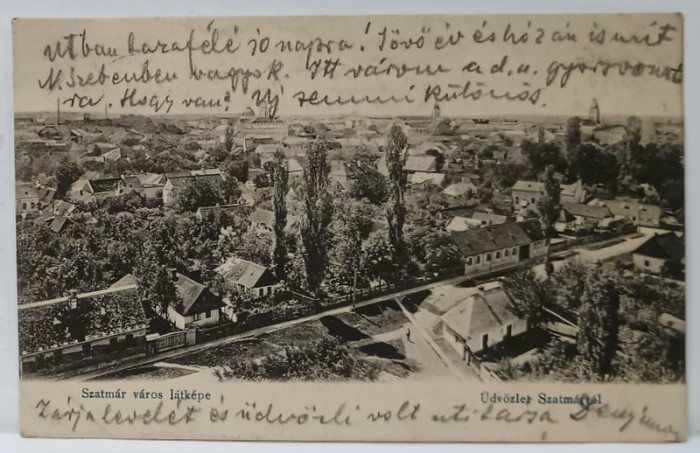 Utban hazafélé 10 napra! Jövő év és hó zán ismét
N. Szebenben vagyok. Itt várom a d. u. gyorsvonat
ra. Hogy van? Uj semmi különös.
Szatmár város látképe
Üdvözlet Szatmárról
Zárja levelét és üdvözli volt uti társa